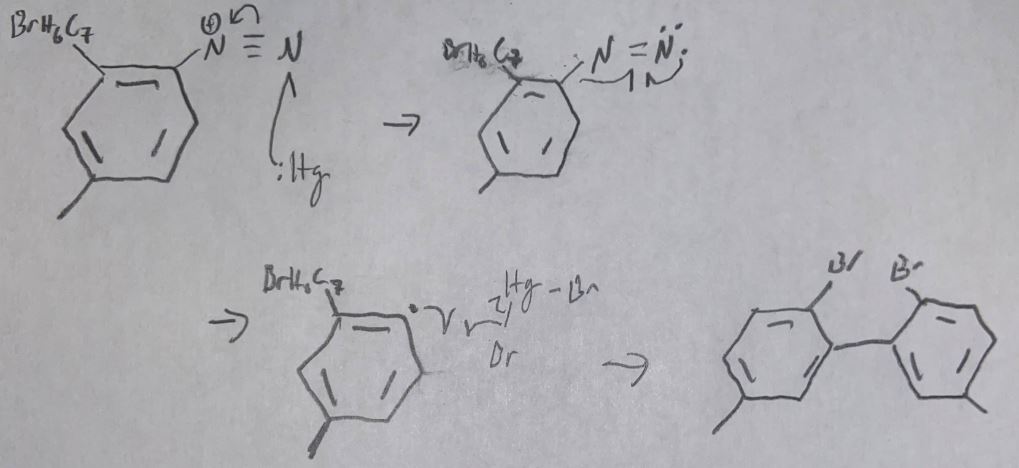 BrH₆C₇ ⊕ N ≡ N
:Hg
BrH₆C₇ N = N
BrH₆C₇ Hg - Br
Br
Br Br